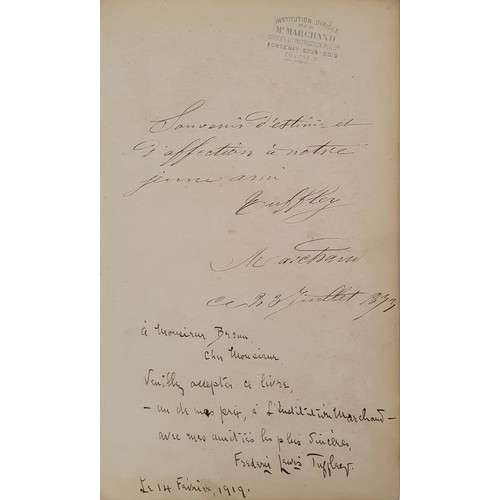 INSTITUTION DIRIGÉE
PAR
Mr MARCHAND
FONTENAY-SOUS-BOIS
Souvenir d'estime et
d'affection à notre
jeune ami
Tuffley
Marchand
ce 23 Juillet 1873
à Monsieur Brown
Cher Monsieur
Veuillez accepter ce livre,
- un de mes prix, à L'Institution Marchand -
avec mes amitiés les plus sincères,
Frederic Lewis Tuffley.
Le 14 Février, 1919.